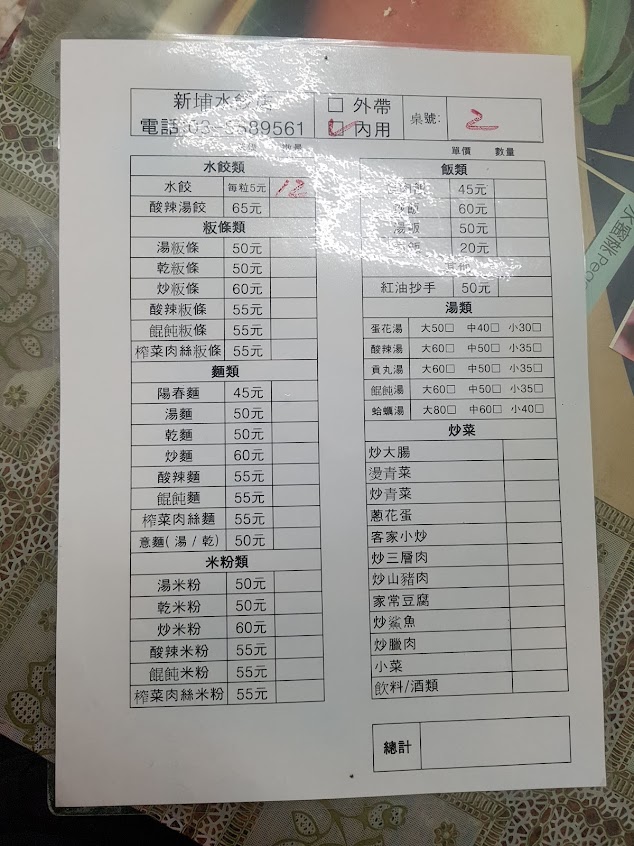 新埔水餃店
電話:03-5889561
外帶
內用
桌號:
2
單價 數量
水餃類
水餃 每粒5元 12
酸辣湯餃 65元
粄條類
湯粄條 50元
乾粄條 50元
炒粄條 60元
酸辣粄條 55元
餛飩粄條 55元
榨菜肉絲粄條 55元
麵類
陽春麵 45元
湯麵 50元
乾麵 50元
炒麵 60元
酸辣麵 55元
餛飩麵 55元
榨菜肉絲麵 55元
意麵(湯 / 乾) 50元
米粉類
湯米粉 50元
乾米粉 50元
炒米粉 60元
酸辣米粉 55元
餛飩米粉 55元
榨菜肉絲米粉 55元
飯類
45元
60元
湯飯 50元
20元
其他
紅油抄手 50元
湯類
蛋花湯 大50□ 中40□ 小30□
酸辣湯 大60□ 中50□ 小35□
貢丸湯 大60□ 中50□ 小35□
餛飩湯 大60□ 中50□ 小35□
蛤蠣湯 大80□ 中60□ 小40□
炒菜
炒大腸
燙青菜
炒青菜
蔥花蛋
客家小炒
炒三層肉
炒山豬肉
家常豆腐
炒鯊魚
炒臘肉
小菜
飲料/酒類
總計